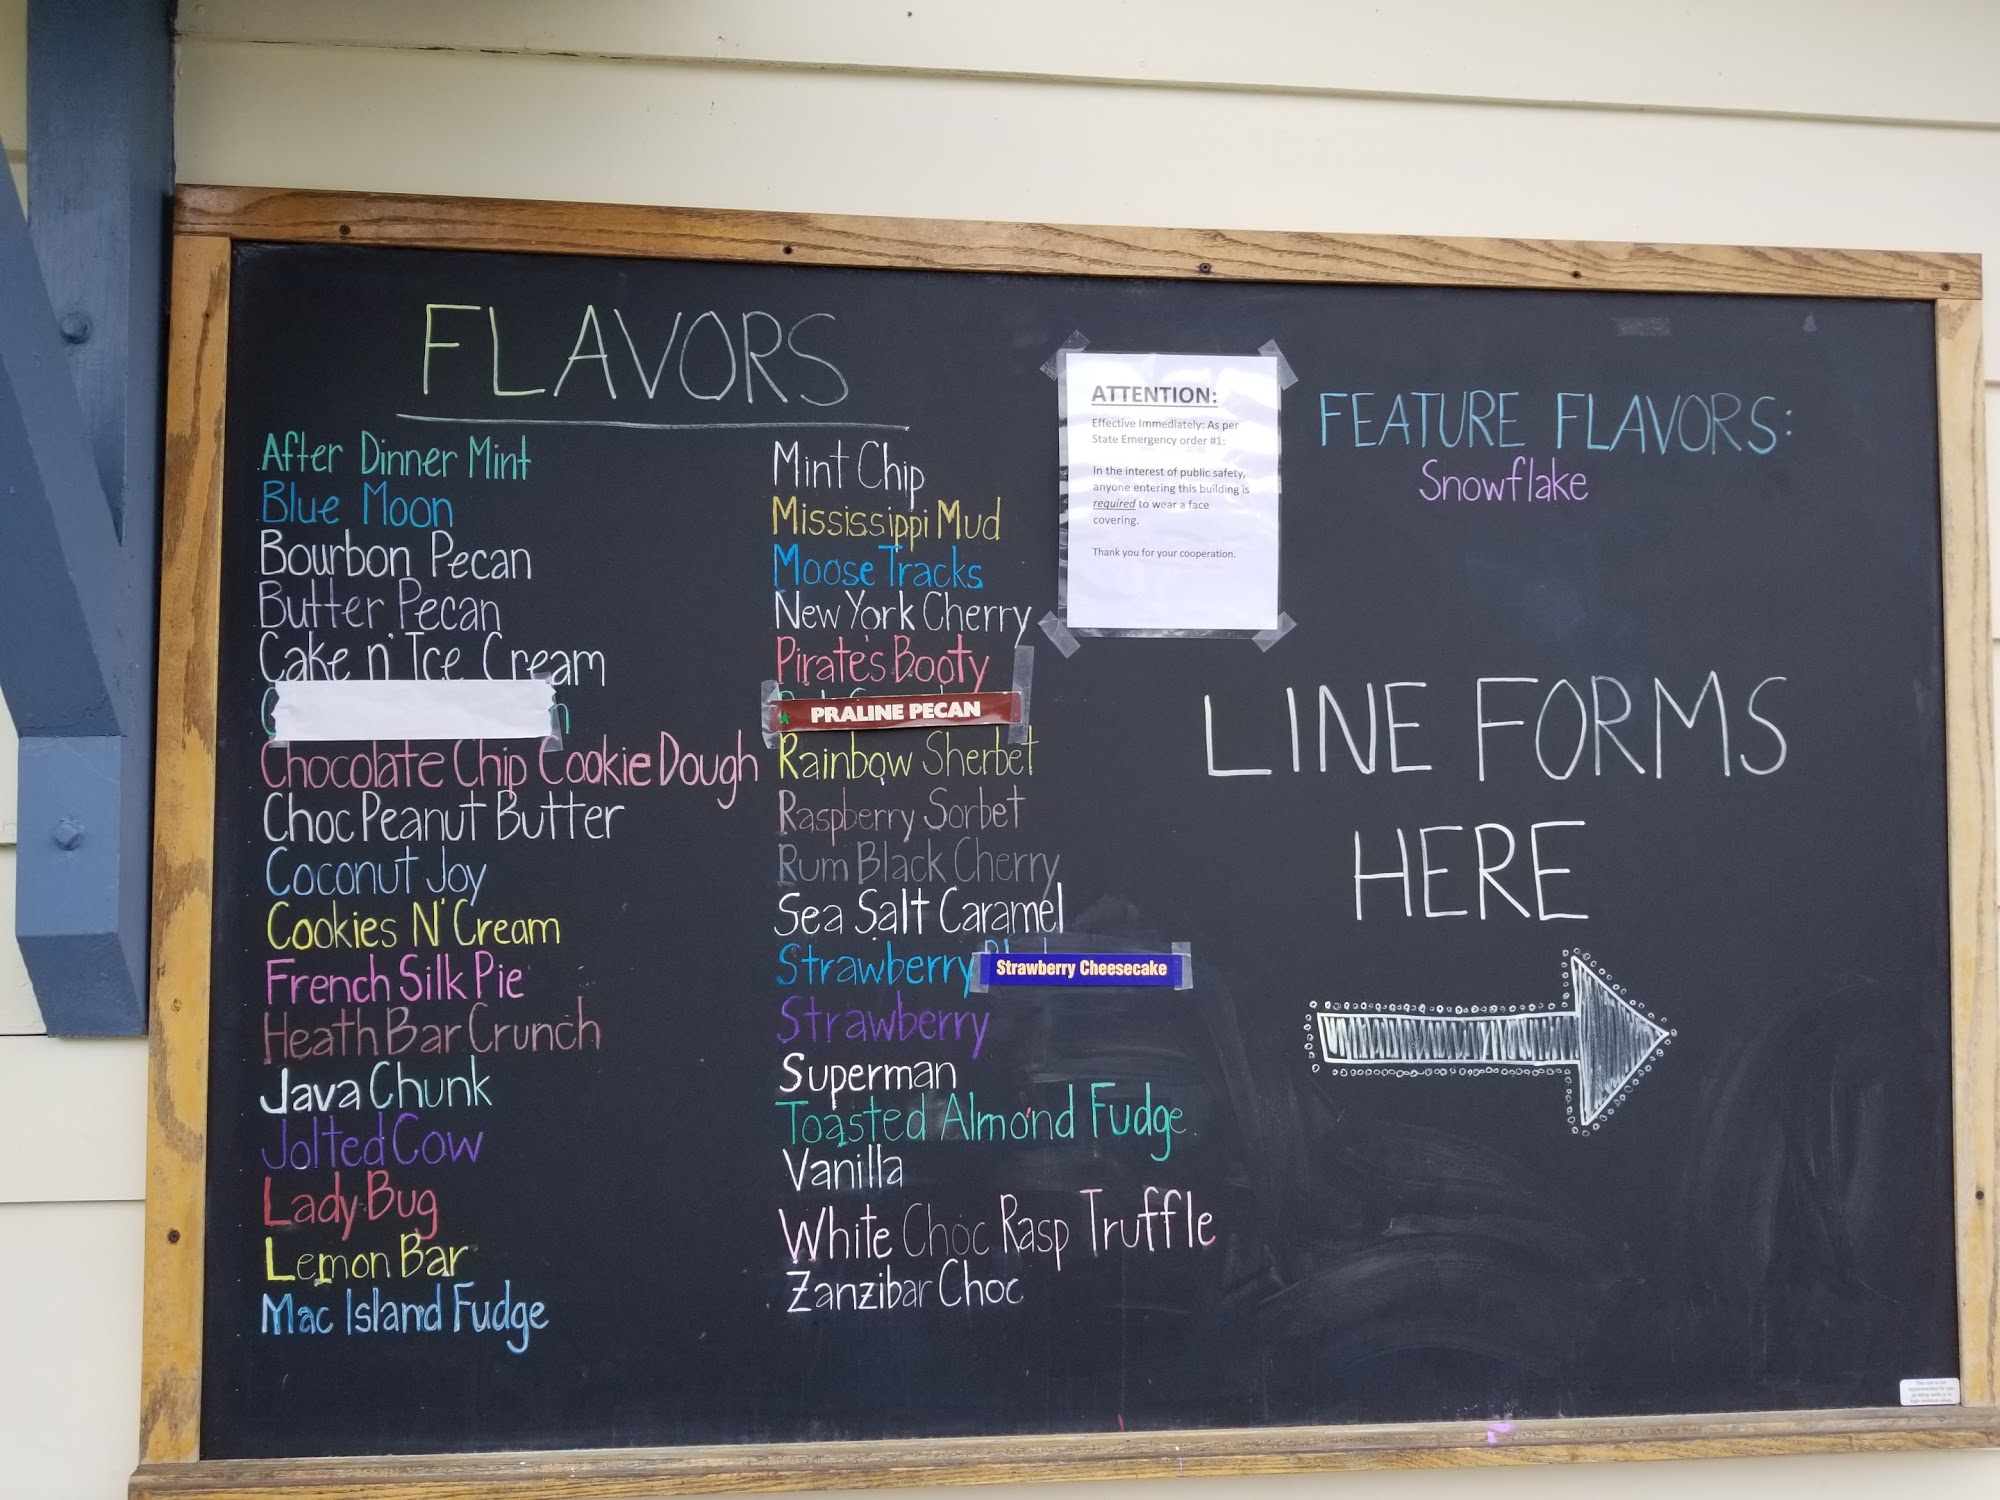 FLAVORS
After Dinner Mint
Blue Moon
Bourbon Pecan
Butter Pecan
Cake n' Ice Cream
Chocolate Chip Cookie Dough
Choc Peanut Butter
Coconut Joy
Cookies N' Cream
French Silk Pie
Heath Bar Crunch
Java Chunk
Jolted Cow
Lady Bug
Lemon Bar
Mac Island Fudge
Mint Chip
Mississippi Mud
Moose Tracks
New York Cherry
Pirate's Booty
PRALINE PECAN
Rainbow Sherbet
Raspberry Sorbet
Rum Black Cherry
Sea Salt Caramel
Strawberry Strawberry Cheesecake
Strawberry
Superman
Toasted Almond Fudge
Vanilla
White Choc Rasp Truffle
Zanzibar Choc
ATTENTION:
Effective Immediately: As per
State Emergency order #1:
In the interest of public safety,
anyone entering this building is
required to wear a face
covering.
Thank you for your cooperation.
FEATURE FLAVORS:
Snowflake
LINE FORMS
HERE